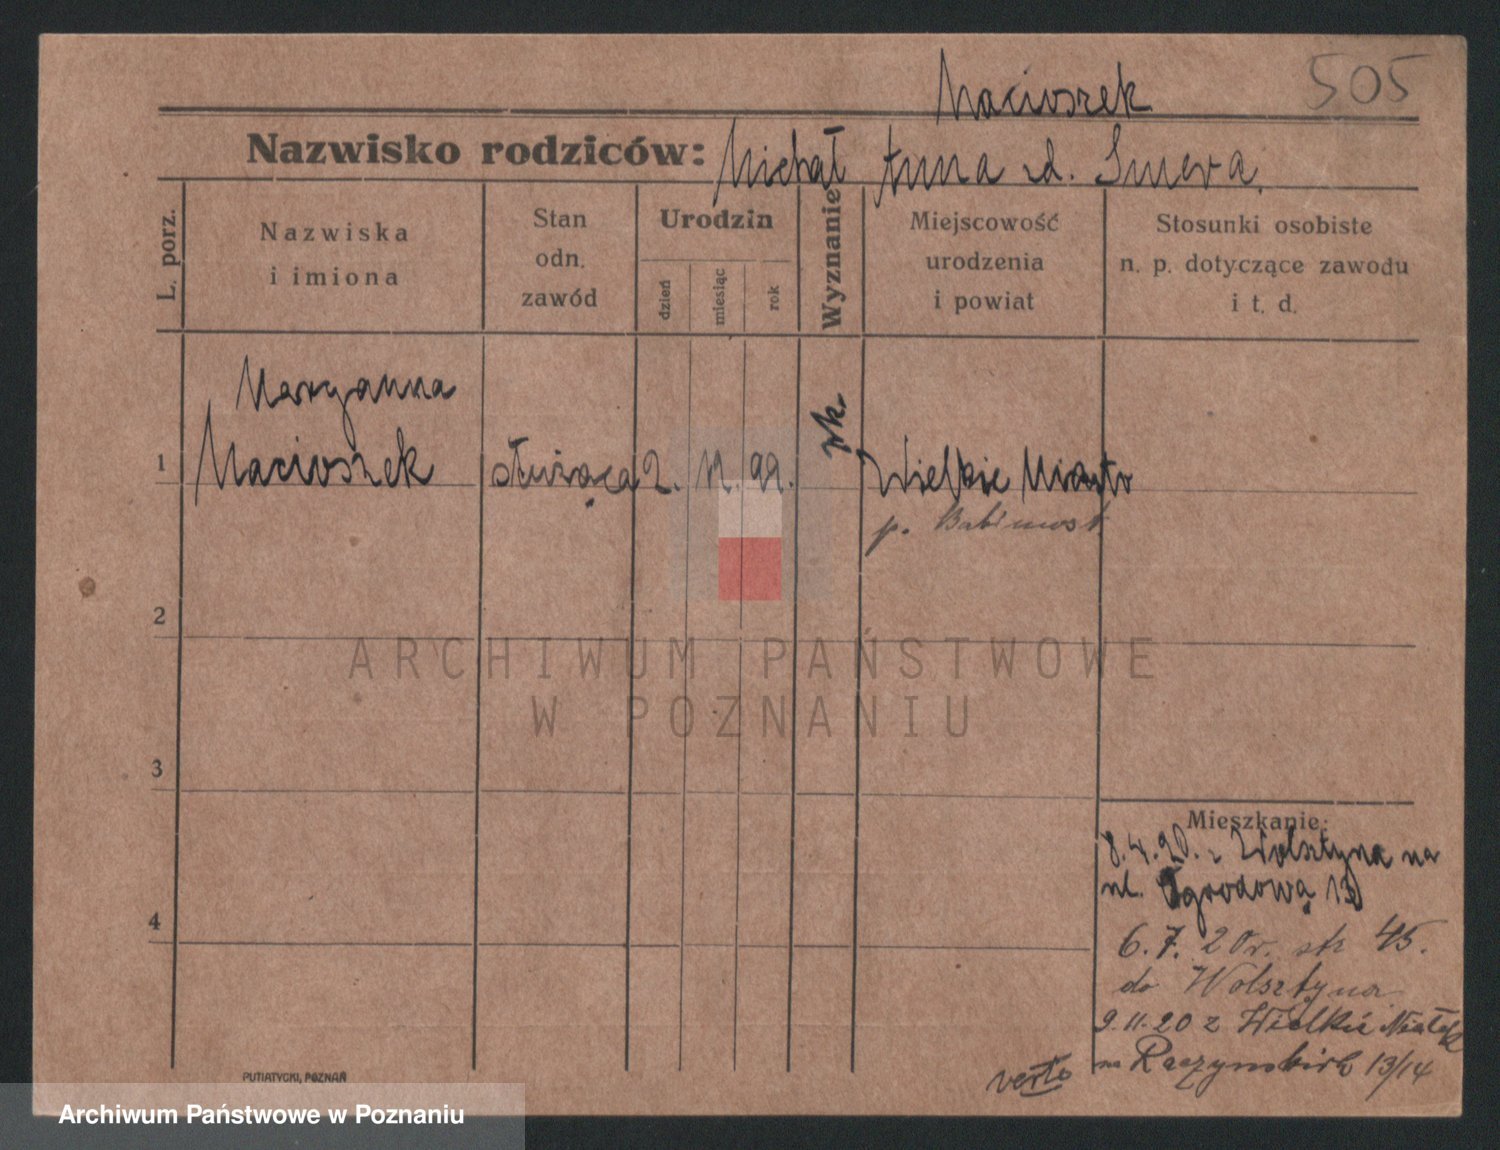 505
Macioszek
Nazwisko rodziców: Michał Anna zd.
L. porz.
Nazwiska
i imiona
Stan
odn.
zawód
Urodzin
dzień
miesiąc
rok
Wyznanie
Miejscowość
urodzenia
i powiat
Stosunki osobiste
n. p. dotyczące zawodu
i t. d.
Maryanna
1 Macioszek służąca 2. 99. rk. Wielkie Miasto
p. Babimost
2
ARCHIWUM PAŃSTWOWE
W POZNANIU
3
Mieszkanie:
8.4.20. z Wolsztyna na
ul. Ogrodową 13
4
6.7.20r. str 45.
do Wolsztyna
9.11.20 z Wielkie
na Raczyńskich 13/14
verto
PUTIATYCKI, POZNAŃ
Archiwum Państwowe w Poznaniu